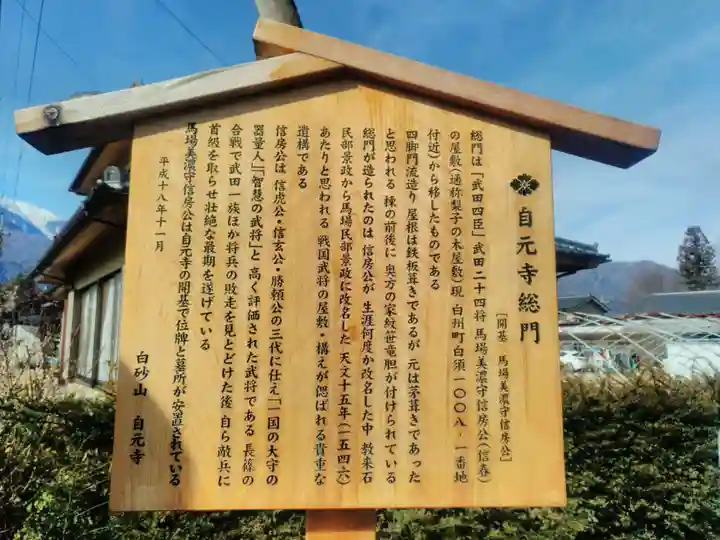 自元寺総門
[開基 馬場美濃守信房公]
総門は「武田四臣」武田二十四将 馬場美濃守信房公(信春)
の屋敷(通称梨子の木屋敷)現 白州町白須一〇〇八-一番地
付近)から移したものである
四脚門流造り 屋根は鉄板葺きであるが 元は茅葺きであった
と思われる 棟の前後に 奥方の家紋笹竜胆が付けられている
総門が造られたのは 信房公が 生涯何度か改名した中 教来石
民部景政から馬場民部景政に改名した 天文十五年(一五四六)
あたりと思われる 戦国武将の屋敷・構えが偲ばれる貴重な
遺構である
信房公は 信虎公・信玄公・勝頼公の三代に仕え「一国の大守の
器量人」「智慧の武将」と 高く評価された武将である 長篠の
合戦で武田一族ほか将兵の敗走を見とどけた後 自ら敵兵に
首級を取らせ壮絶な最期を遂げている
馬場美濃守信房公は自元寺の開基で位牌と墓所が安置されている
平成十八年十一月
白砂山 自元寺